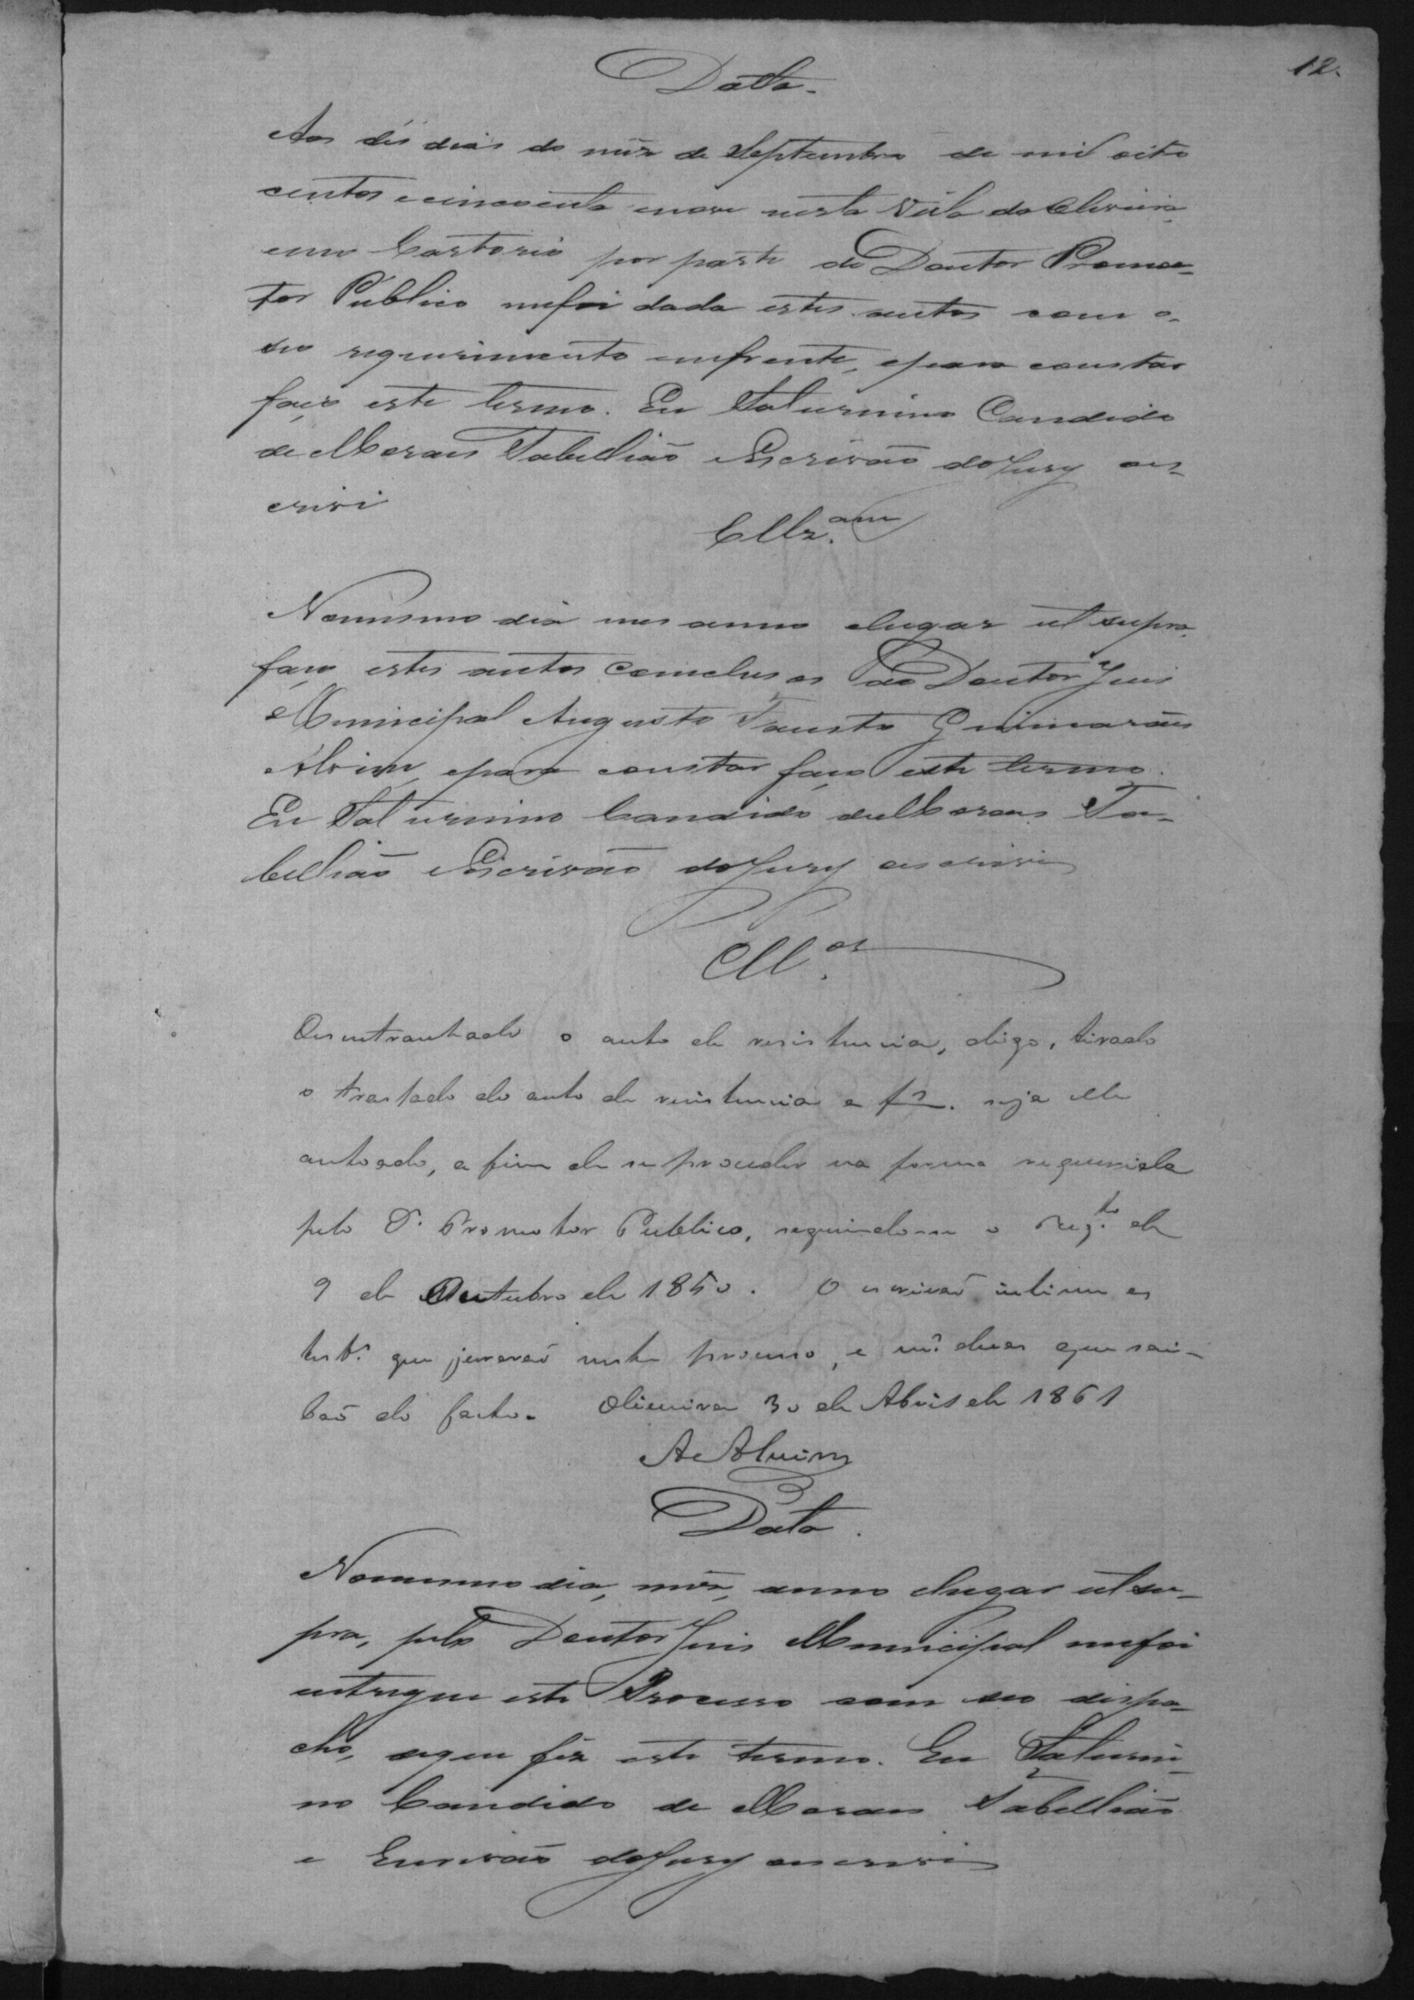 12.
Data.
Aos dés dias do mês de Septembro de mil oito
centos e cincoenta e nove nesta Villa da Oliveira
em Cartorio por parte do Doutor Promo-
tor Publico me foi dada estes autos com o
seo requerimento em frente, e para constar
faço este termo. Eu Saturnino Candido
de Moraes Tabellião e Escrivão do Jury es-
crivi
Nomesmo dia mes anno e lugar ut supra
faço estes autos conclusos ao Doutor Juis
Municipal Augusto Fausto Guimarães
Alvim, e para constar faço este termo.
Eu Saturnino Candido de Moraes Ta-
bellião e Escrivão do Jury escrivi
Cll.os
Desentranhado o auto de resistencia, digo, tirado
o traslado do auto de resistencia e seja elle
autoado, a fim de se proceder na forma requerida
pelo Dr. Promotor Publico, seguindo-se o Reg.to de
9 de Outubro de 1850. O escrivão intime as
test.as que jurarão neste processo, e m.s duas que sai-
bão do facto. Oliveira 30 de Abril de 1861
A Alvim
Data.
Nomesmo dia, mês, anno e lugar ut su-
pra, pelo Doutor Juis Municipal me foi
entregue este Processo com seo despa-
cho, de que fiz este termo. Eu Saturni-
no Candido de Moraes Tabellião
e Escrivão do Jury escrivi